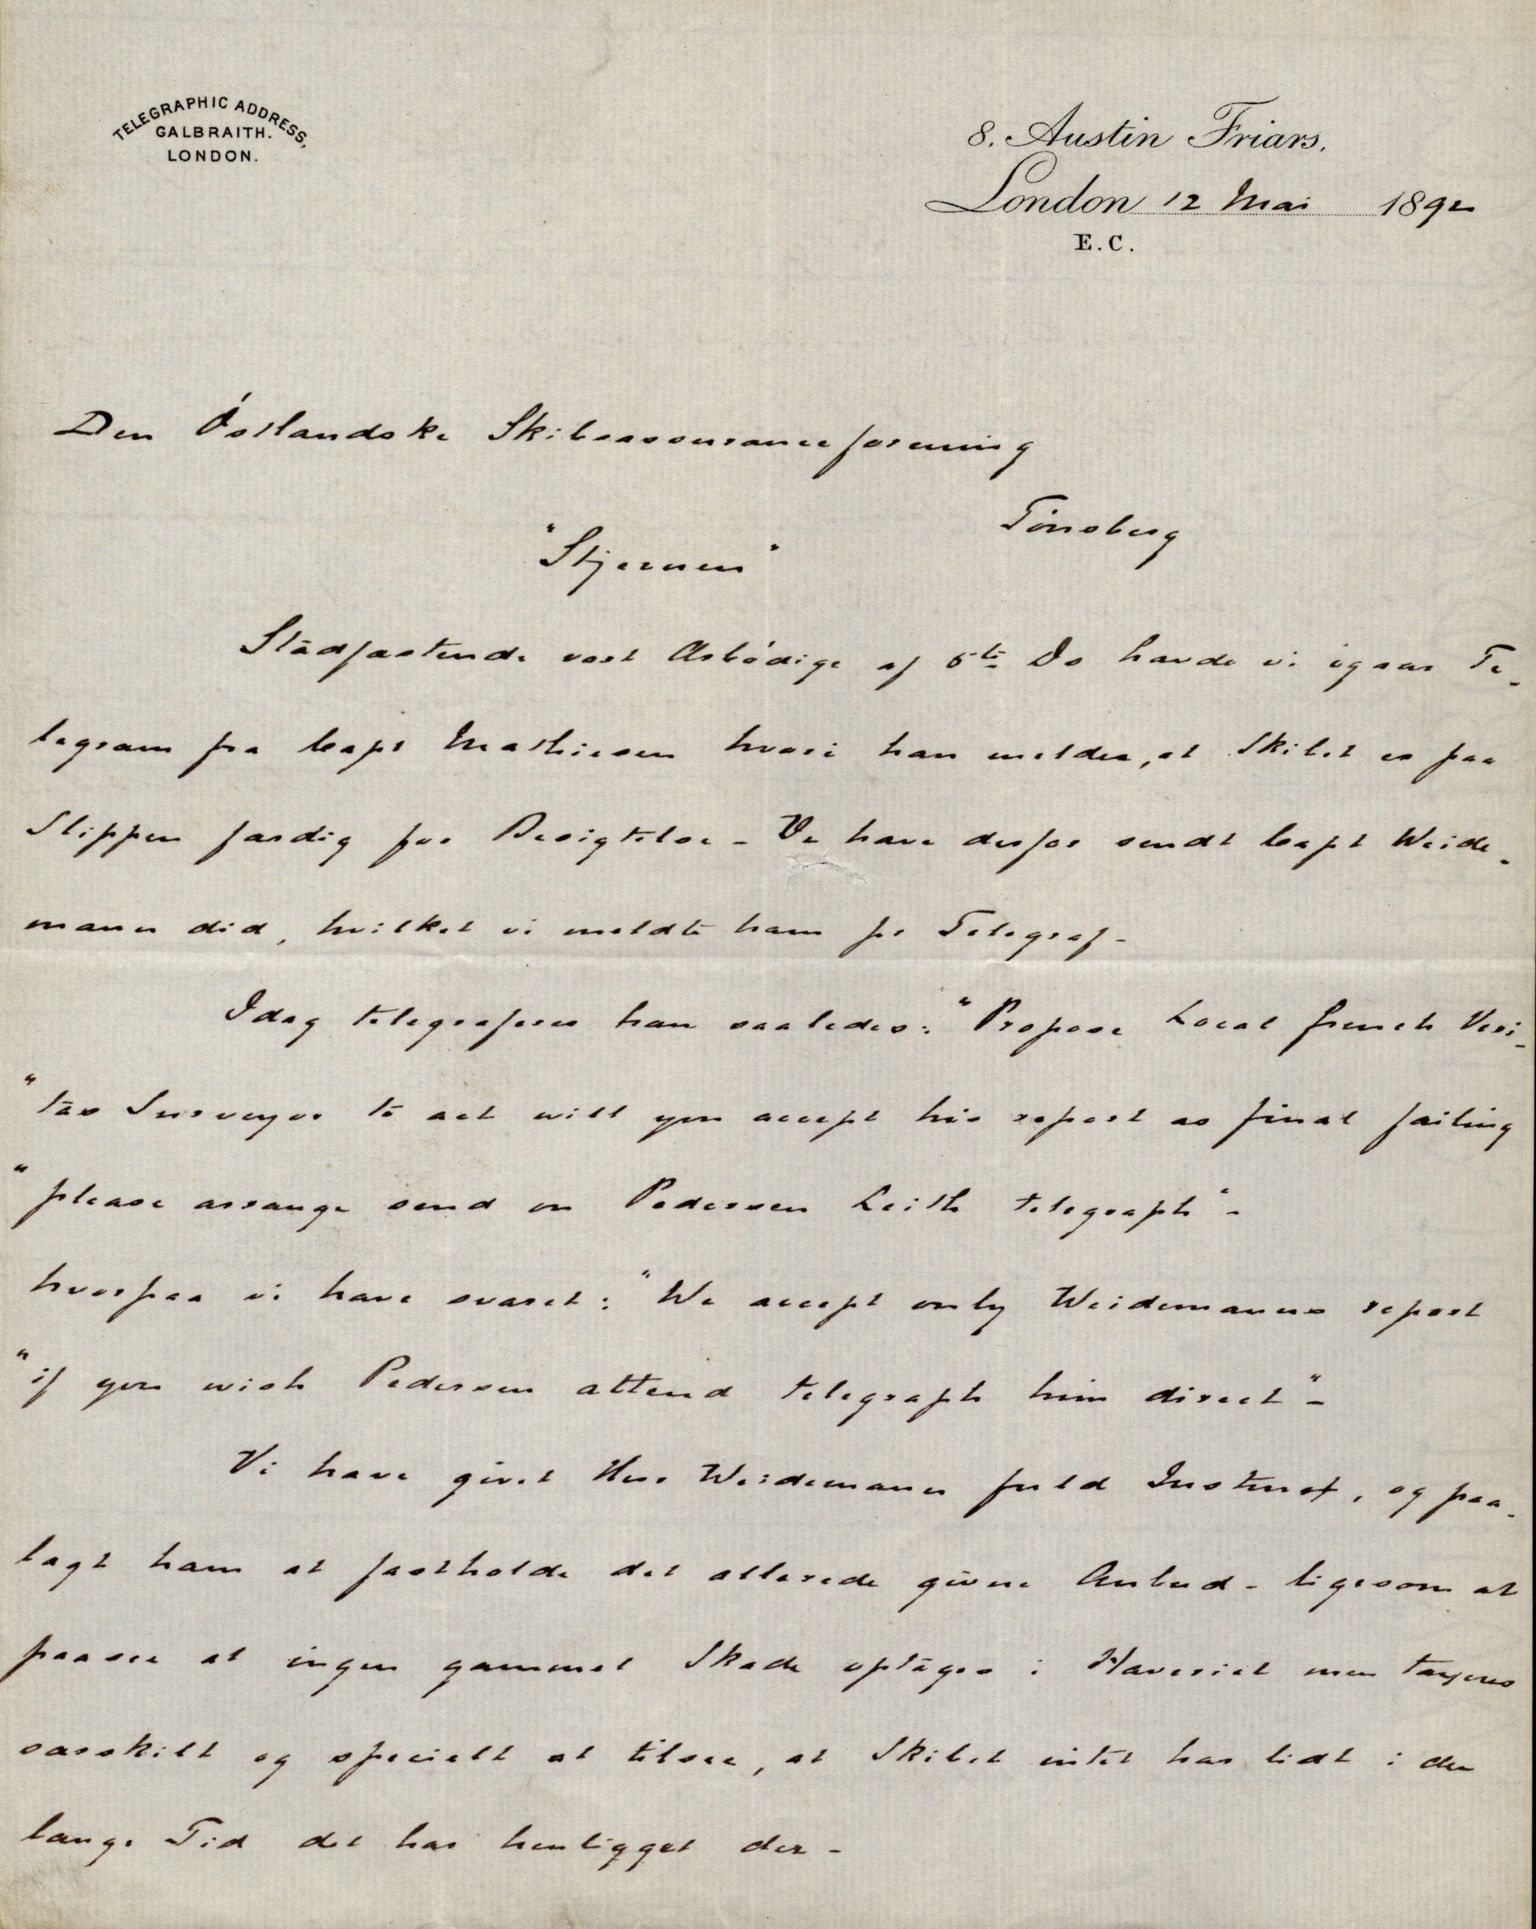 TELEGRAPHIC ADDRESS,
GALBRAITH.
LONDON.
8. Austin Friars.
London 12 Mai 1892
E.C.
Den Østlandske Skibsassuranceforening
Tönsberg
"Stjernen"
Stadfæstende vort Ærbödige af 5te Ds havde vi igaar Te-
legram fra Capt Mathiesen hvori han melder, at Skibet er paa
Slippen færdig for Besigtelse - Vi have derfor sendt Capt Weide-
mann did, hvilket vi meldte ham pr Telegraf -
Idag telegraferer han saaledes: "Propose Local french Veri-
"tas Surveyor to act will you accept his report as final failing
"please arrange send on Pedersen Leith telegraph" -
hvorpaa vi have svaret: "We accept only Weidemanns report
"if you wish Pedersen attend telegraph him direct" -
Vi have givet Herr Weidemann fuld Instrux, og paa-
lagt ham at fastholde det allerede givne Anbud - ligesom at
paasee at ingen gammel Skade optages i Havariet men taxeres
særskilt og specielt at tilsee, at Skibet intet har lidt i den
lange Tid det har henligget der -